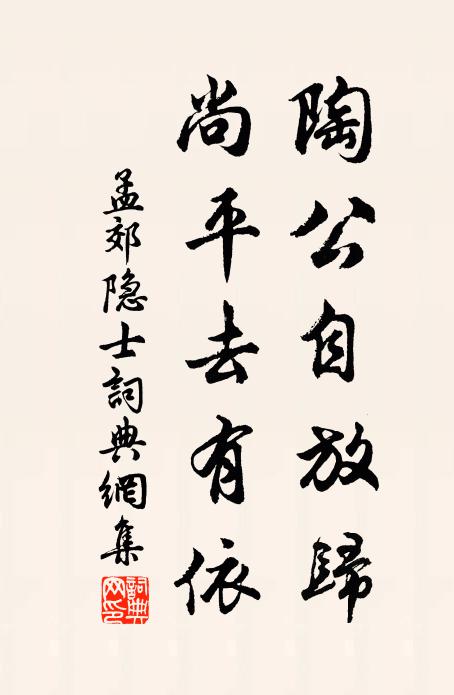 陶公自放歸
尚平去有依
孟郊隐士詞典網集
詞典網印